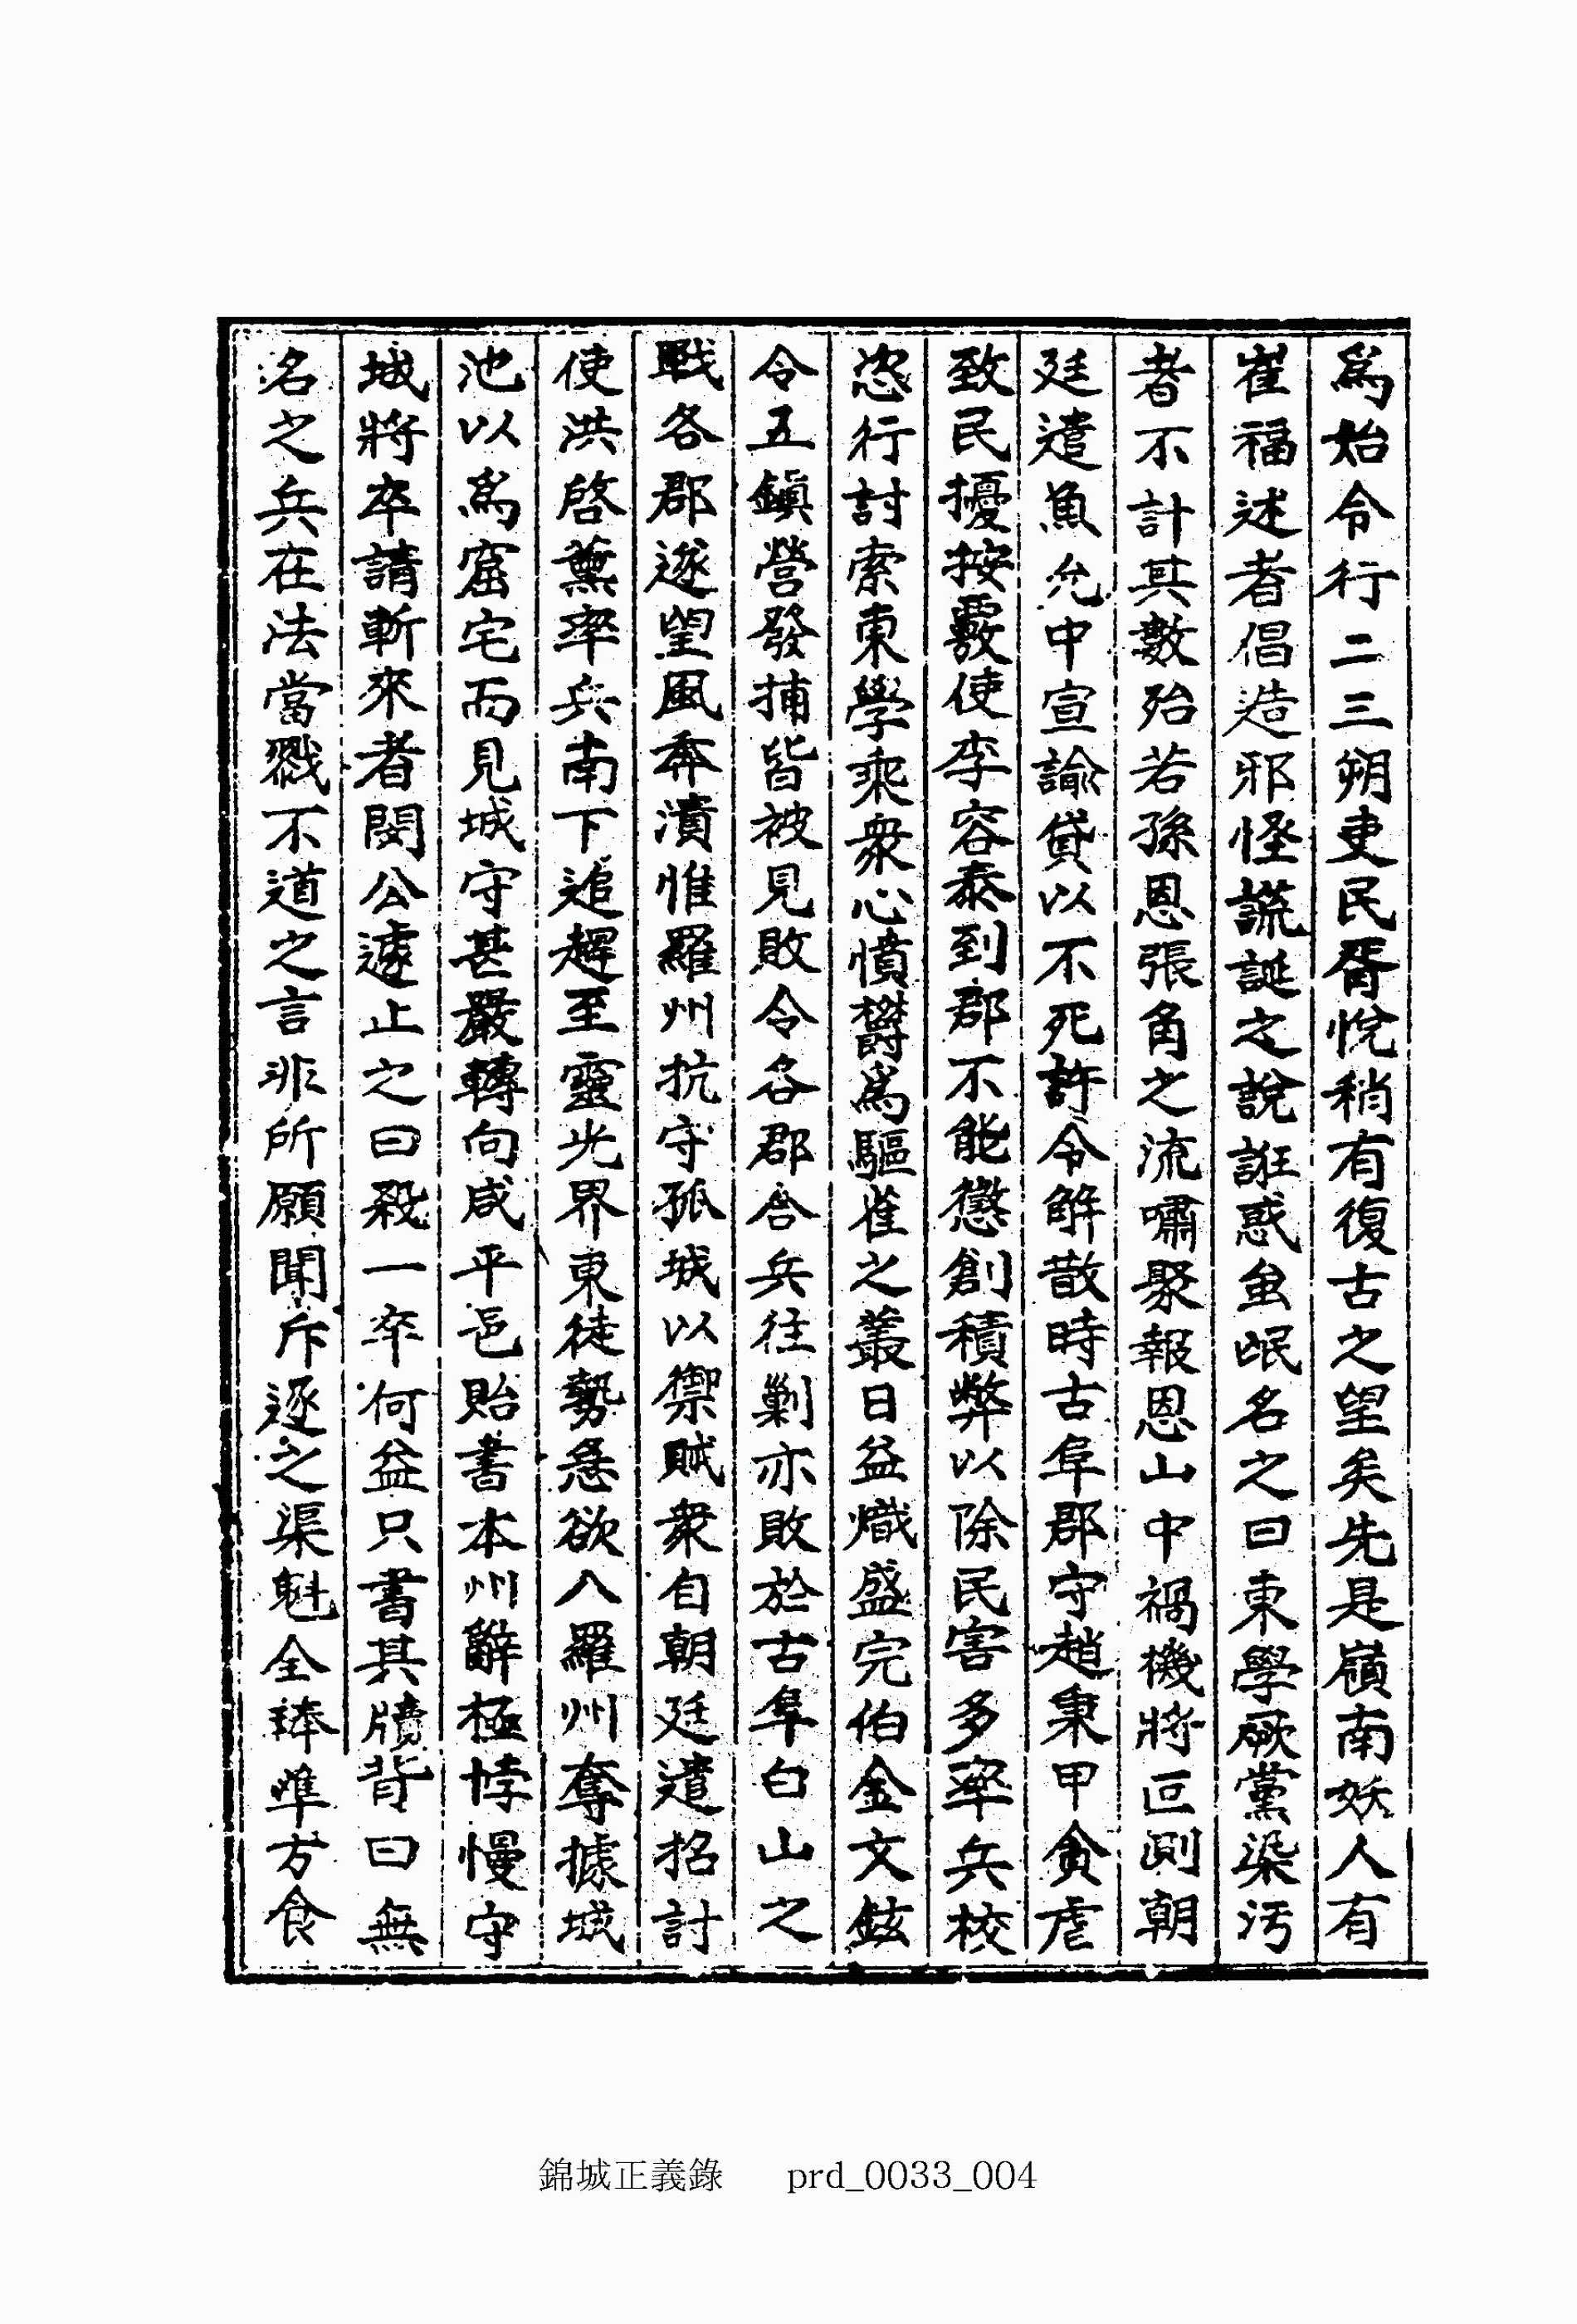 爲始令行二三朔吏民胥悅稍有復古之望矣先是嶺南妖人有
崔福述者倡造邪怪謊誕之說誑惑蚩氓名之曰東學厥黨染汚
者不計其數殆若孫恩張角之流嘯聚報恩山中禍機將叵測朝
廷遣魚允中宣諭貸以不死許令解散時古阜郡守趙秉甲貪虐
致民擾按覈使李容泰到郡不能懲創積弊以除民害多率兵校
恣行討索東學乘衆心憤欝爲驅雀之叢日益熾盛完伯金文鉉
令五鎭營發捕皆被見敗令各郡合兵往剿亦敗於古阜白山之
戰各郡遂望風奔潰惟羅州抗守孤城以禦賊衆自朝廷遣招討
使洪啓薰率兵南下追趕至靈光界東徒勢急欲入羅州奪據城
池以爲窟宅而見城守甚嚴轉向咸平邑貽書本州辭極悖慢守
城將卒請斬來者閔公遽止之曰殺一卒何益只書其牘背曰無
名之兵在法當戮不道之言非所願聞斥逐之渠魁全琫準方食
錦城正義錄 prd_0033_004